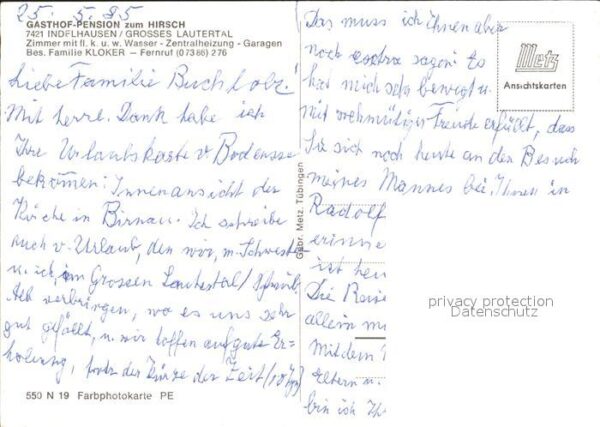 25. 5. 85
GASTHOF-PENSION zum HIRSCH
7421 INDELHAUSEN / GROSSES LAUTERTAL
Zimmer mit fl. k. u. w. Wasser - Zentralheizung - Garagen
Bes. Familie KLOKER - Fernruf (07386) 276
Liebe Familie Buchholz!
Mit herzl. Dank habe ich
Ihre Urlaubskarte v. Bodensee
bekommen: Innenansicht der
Kirche in Birnau. Ich schreibe
auch v. Urlaub, den wir, m. Schwester
u. ich, im Grossen Lautertal / Schwäb.
Alb verbringen, wo es uns sehr
gut gefällt, u. wir hoffen auf gute Er-
holung, trotz der Kürze der Zeit (10 Tg)
550 N 19 Farbphotokarte PE
Gebr. Metz, Tübingen
Das muss ich Ihnen aber
noch extra sagen: es
hat mich sehr bewegt u.
mit wehmütiger Freude erfüllt, dass
Sie sich noch heute an den Besuch
meines Mannes bei Ihnen in
Radolf
erinne
ist heu
Die Reise
allem m
Mit dem
Eltern u.
bin ich Ih
Metz
Ansichtskarten
privacy protection
Datenschutz